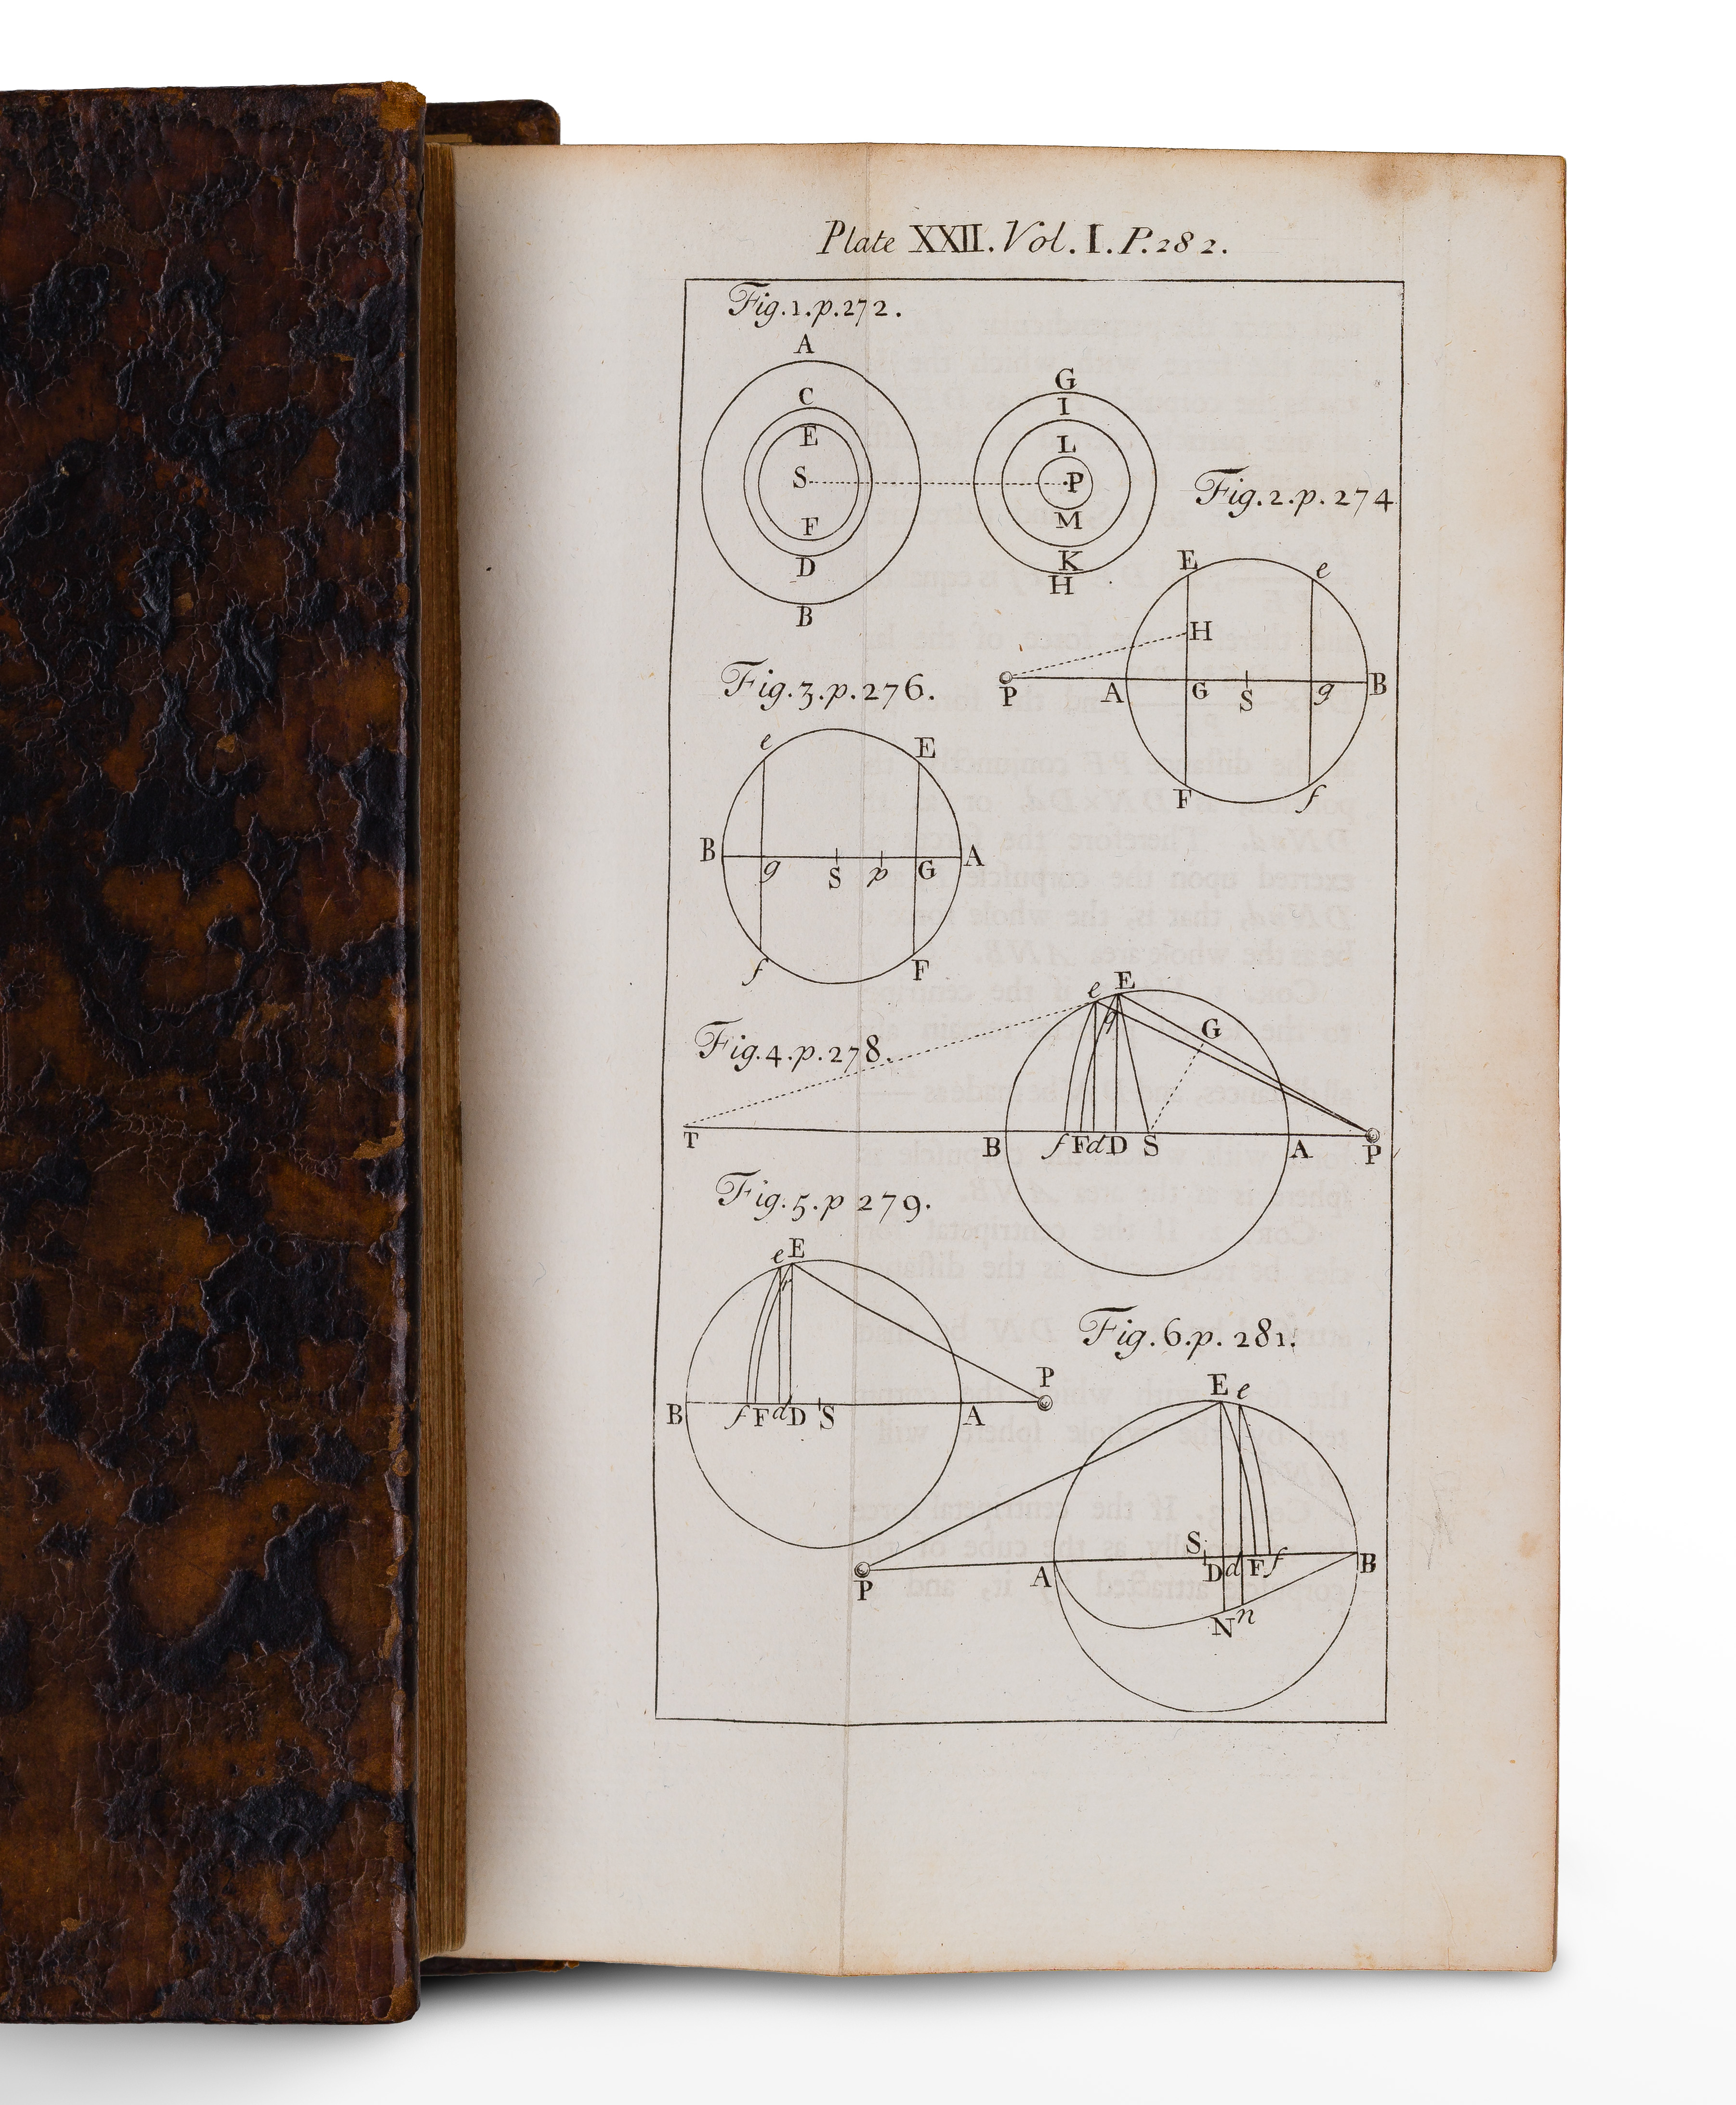 Plate XXII. Vol. I. P. 282.
Fig. 1. p. 272.
A
C
E
S
F
D
B
G
I
L
P
M
K
H
Fig. 2. p. 274
E e
H
P A G S g B
F f
Fig. 3. p. 276.
e E
B g S p G A
f F
Fig. 4. p. 278.
e E
q G
T B f F d D S A P
Fig. 5. p 279.
e E
r
P
B f F d D S A
Fig. 6. p. 281.
E e
S
P A D d F f B
N n